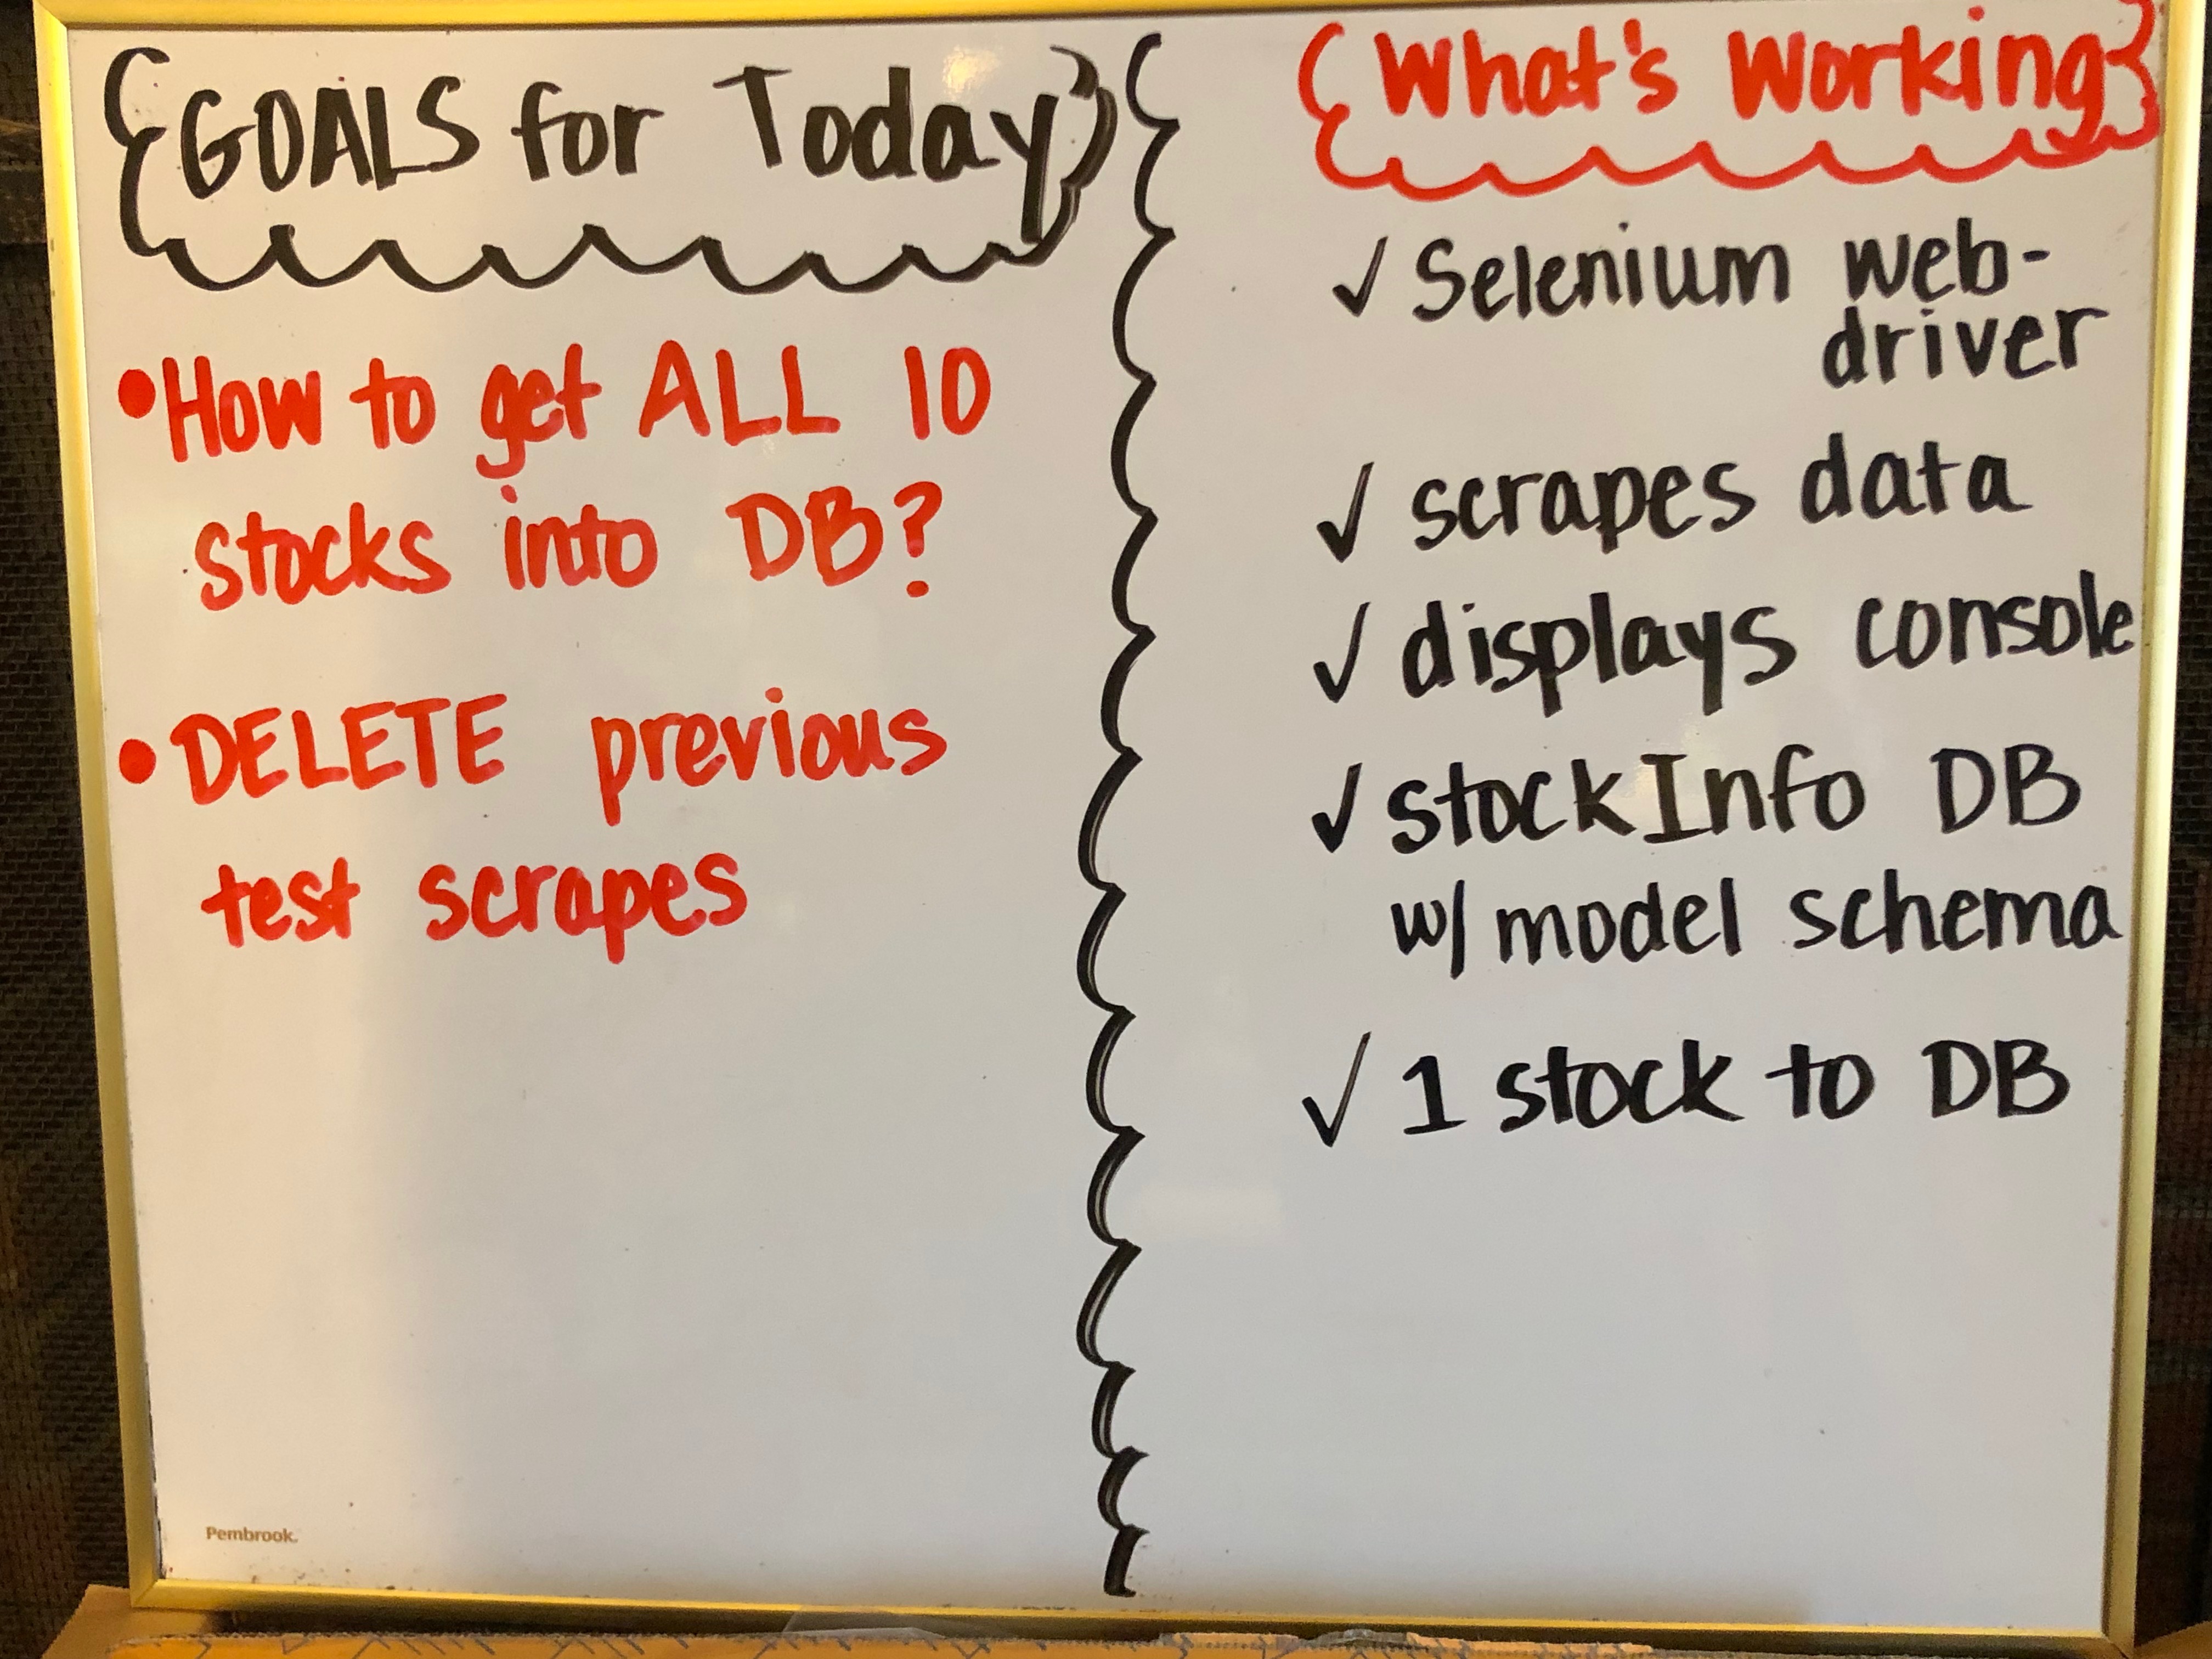 GOALS for Today
• How to get ALL 10
stocks into DB?
• DELETE previous
test scrapes
Pembrook.
What's Working
✓ Selenium web-
driver
✓ scrapes data
✓ displays console
✓ stockInfo DB
w/ model schema
✓ 1 stock to DB